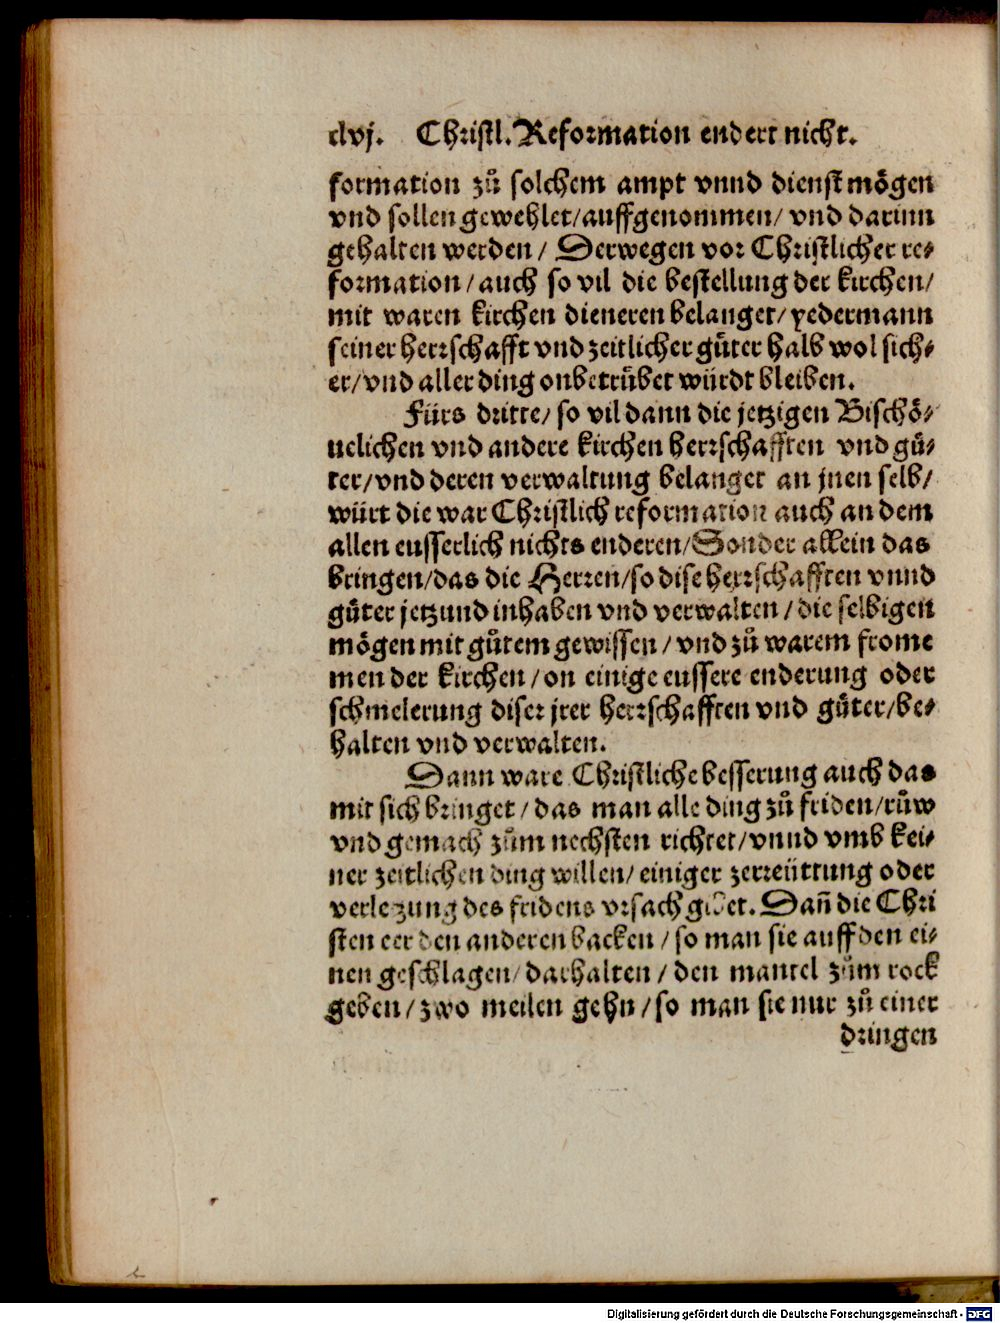 clvj. Christl. Reformation endert nicht.
formation zů solchem ampt vnnd dienst mögen
vnd sollen gewehlet/ auffgenommen/ vnd darinn
gehalten werden/ Derwegen vor Christlicher re⸗
formation/ auch so vil die bestellung der kirchen/
mit waren kirchen dieneren belanget/ yedermann
seiner herrschafft vnd zeitlicher gůter halb wol sich⸗
er/ vnd aller ding onbetrübet würdt bleiben.
Fürs dritte/ so vil dann die jetzigen Bischö⸗
uelichen vnd andere kirchen herrschafften vnd gü⸗
ter/ vnd deren verwaltung belanget an jnen selb/
würt die war Christlich reformation auch an dem
allen eusserlich nichts enderen/ Sonder allein das
bringen/ das die Herren/ so dise herrschafften vnnd
güter jetzund inhaben vnd verwalten/ die selbigen
mögen mit gůtem gewissen/ vnd zů warem frome
men der kirchen/ on einige eussere enderung oder
schmelerung diser jrer herrschafften vnd güter/ be⸗
halten vnd verwalten.
Dann ware Christliche besserung auch das
mit sich bringet/ das man alle ding zů friden/ růw
vnd gemach zům nechsten richtet/ vnnd vmb kei⸗
ner zeitlichen ding willen/ einiger zerreüttung oder
verletzung des fridens vrsach gibet. Dañ die Chri
sten eer den anderen backen/ so man sie auff den ei⸗
nen geschlagen/ darhalten/ den mantel zům rock
geben/ zwo meilen gehn/ so man sie nur zů einer
dringen
Digitalisierung gefördert durch die Deutsche Forschungsgemeinschaft - DFG